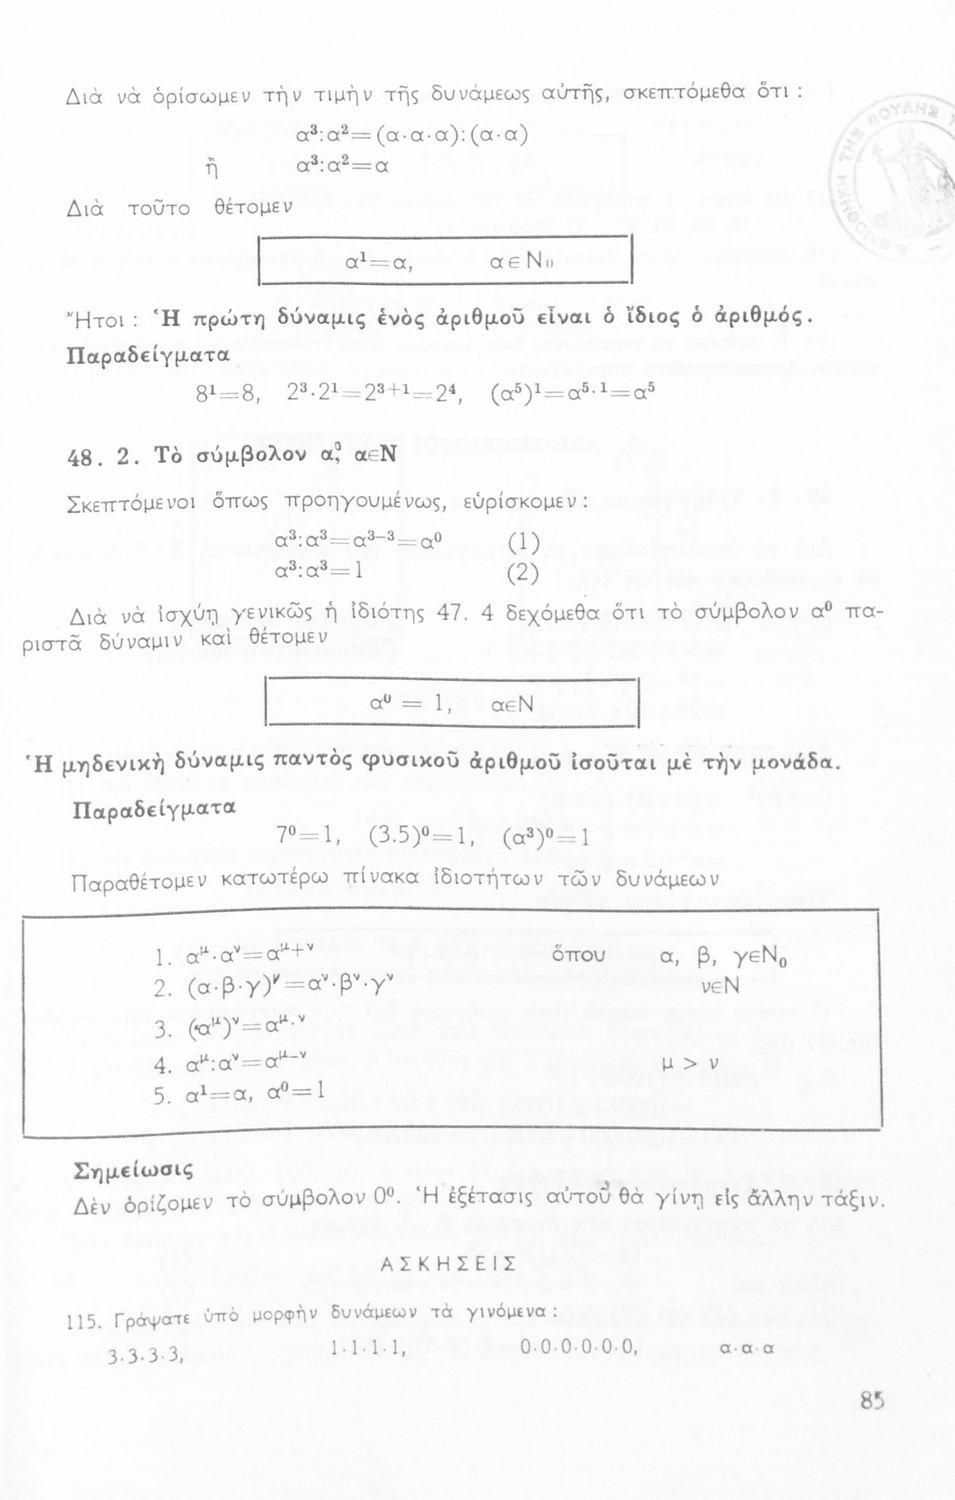 Διὰ νὰ ὁρίσωμεν τὴν τιμὴν τῆς δυνάμεως αὐτῆς, σκεπτόμεθα ὅτι :
α³:α²=(α·α·α):(α·α)
ἢ α³:α²=α
Διὰ τοῦτο θέτομεν
α¹=α, αεN₀
Ἤτοι : Ἡ πρώτη δύναμις ἑνὸς ἀριθμοῦ εἶναι ὁ ἴδιος ὁ ἀριθμός.
Παραδείγματα
8¹=8, 2³·2¹=2³⁺¹=2⁴, (α⁵)¹=α⁵·¹=α⁵
48. 2. Τὸ σύμβολον α⁰, αεN
Σκεπτόμενοι ὅπως προηγουμένως, εὑρίσκομεν :
α³:α³=α³⁻³=α⁰ (1)
α³:α³=1 (2)
Διὰ νὰ ἰσχύῃ γενικῶς ἡ ἰδιότης 47. 4 δεχόμεθα ὅτι τὸ σύμβολον α⁰ πα-
ριστᾶ δύναμιν καὶ θέτομεν
α⁰ = 1, αεN
Ἡ μηδενικὴ δύναμις παντὸς φυσικοῦ ἀριθμοῦ ἰσοῦται μὲ τὴν μονάδα.
Παραδείγματα
7⁰=1, (3.5)⁰=1, (α³)⁰=1
Παραθέτομεν κατωτέρω πίνακα ἰδιοτήτων τῶν δυνάμεων
1. α^μ·α^ν=α^μ+ν ὅπου α, β, γεN₀
2. (α·β·γ)^ν=α^ν·β^ν·γ^ν νεN
3. (α^μ)^ν=α^μ·ν
4. α^μ:α^ν=α^μ-ν μ > ν
5. α¹=α, α⁰=1
Σημείωσις
Δὲν ὁρίζομεν τὸ σύμβολον 0⁰. Ἡ ἐξέτασις αὐτοῦ θὰ γίνῃ εἰς ἄλλην τάξιν.
ΑΣΚΗΣΕΙΣ
115. Γράψατε ὑπὸ μορφὴν δυνάμεων τὰ γινόμενα :
3·3·3·3, 1·1·1·1, 0·0·0·0·0·0, α·α·α
85